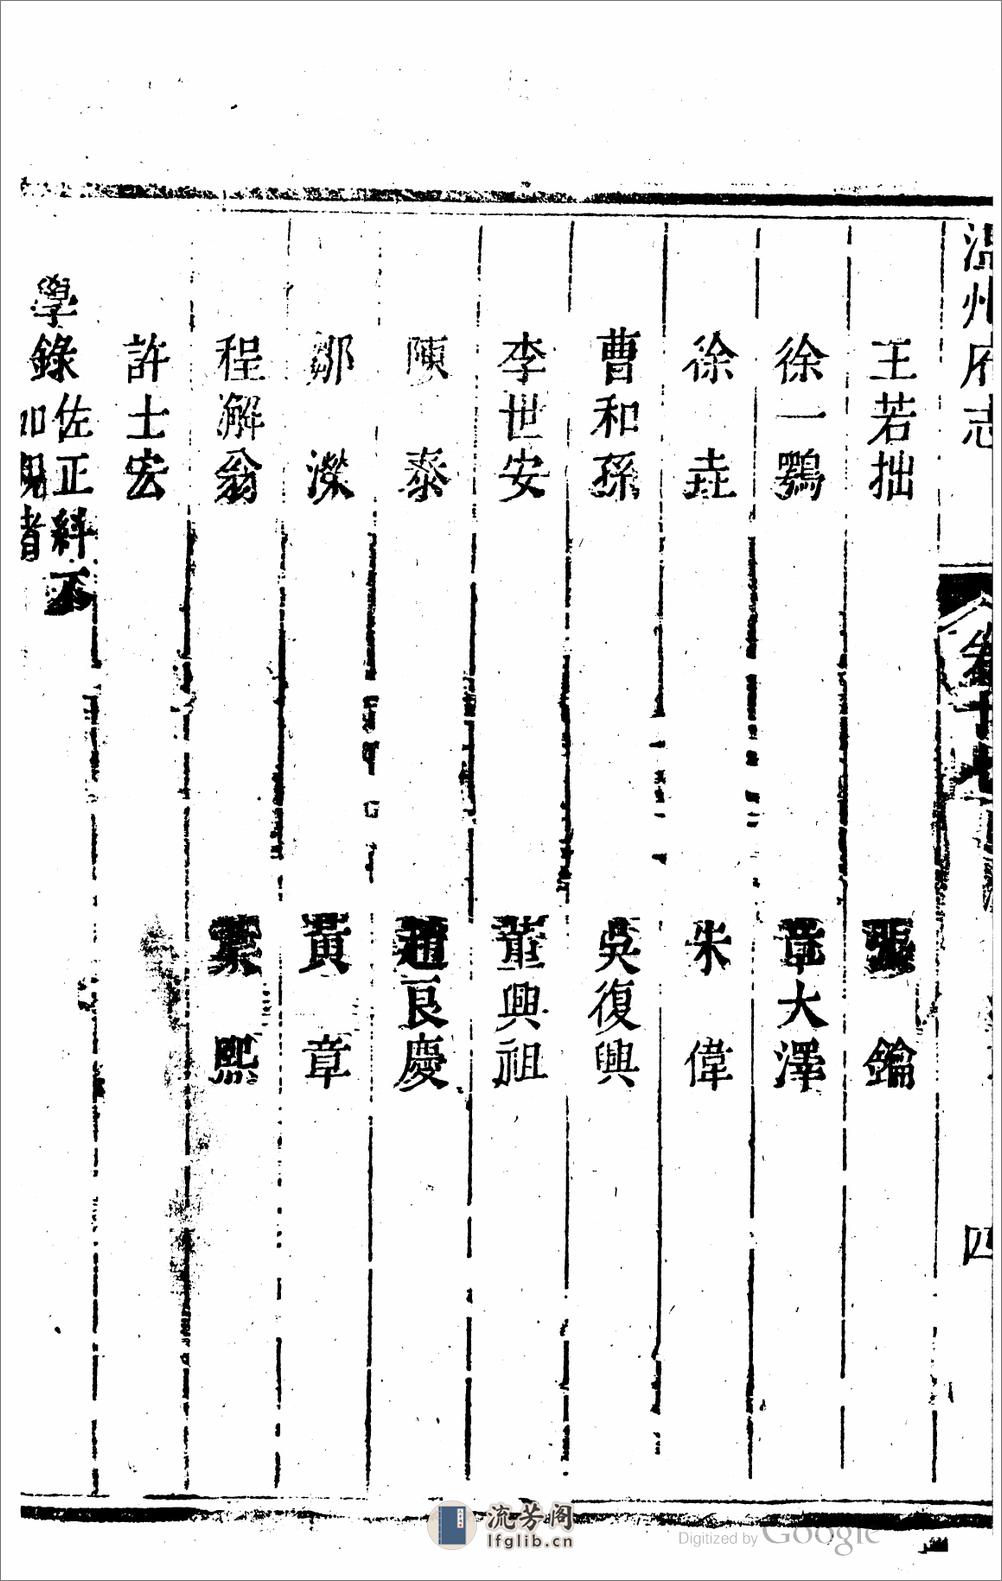 溫州府志 卷十七 四
王若拙 張鑰
徐一鶚 章大澤
徐垚 朱偉
曹和孫 吳復興
李世安 董興祖
陳泰 趙良慶
鄒濚 黃章
程解翁 葉熙
許士宏
學錄 佐正糾不
如規者
流芳阁
lfglib.cn
Digitized by Google